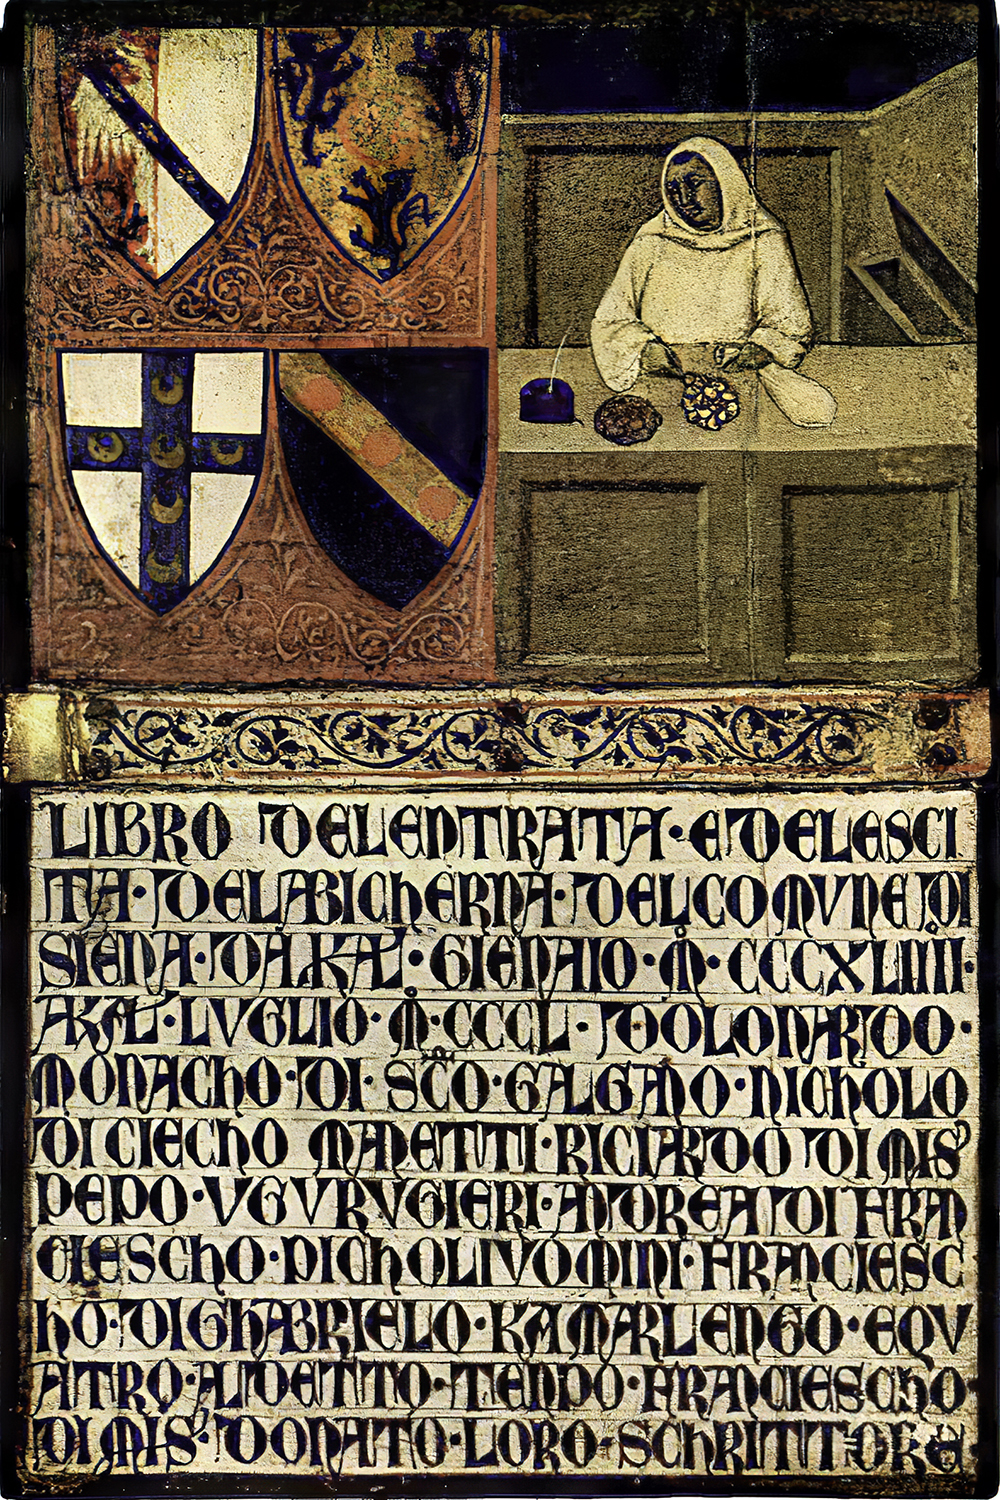 LIBRO DELENTRATA · EDELESCI
TA · DELABICHERNA · DELCOMVNEDI
SIENA · DAKAL · GIENAIO · M̊ · CCCXLIIIII ·
AKAL · LVGLIO · M̊ · CCCL · DOLONARDO ·
MONACHO · DI · SC̄O · GALGANO · NICHOLO
DI CIECHO MANETTI · RICIARDO DI MIS̓
PEPO · VGVRVGIERI · ANDREA DI FRAN
CIESCHO · PICHOLIVOMINI · FRANCIESC
HO · DIGHABRIELO · KAMARLENGO · EQV
ATRO · ALDETTO TENPO · FRANCIESCHO ·
DI MIS̓ · DONATO · LORO · SCHRITTORE